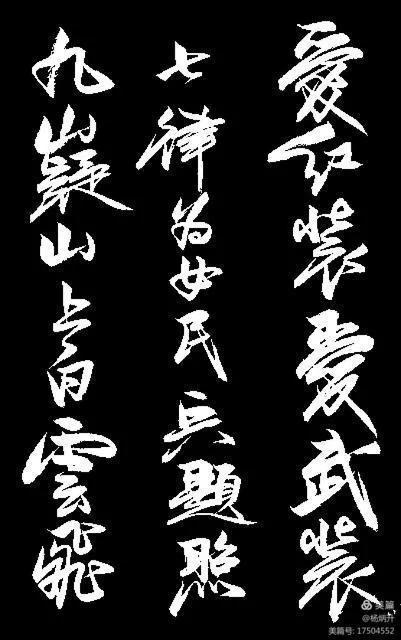 爱红装爱武装
七律为女民兵题照
九嶷山上白雲飛
美篇
@杨炳升
美篇号: 17504552